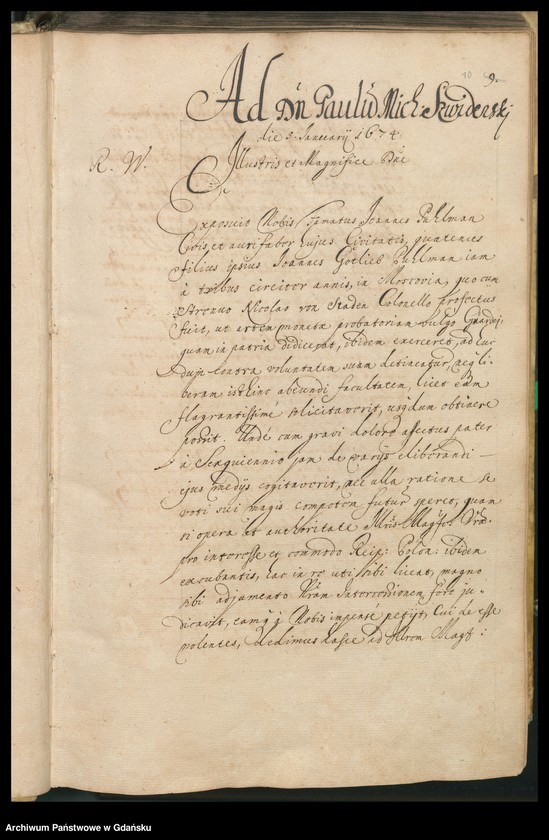 10 9.
Ad Dn Paulū Mich: Szwidenskj
die 3. Januarij 1674.
R. W.
Illustris et Magnifice Dne
Exposuit Nobis Famatus Joannes Puhlman
Civis, et aurifaber hujus Civitatis, quatenus
filius ipsius Joannes Gotlieb Puhlman iam
à tribus circiter annis, in Moscovia, quo cum
Strenuo Nicolao von Staden Colonello profectus
fuit, ut artem monetæ probatoriam vulgo Guardej,
quam in patria didicerat, ibidem exerceret, ad huc
contra voluntatem suam detineatur, neq li-
beram isthinc abeundi facultatem, licet eam
flagrantissimé solicitaverit, usq dum obtinere
potuit. Unde cum gravi dolore affectus pater
à jam de varijs eliberandi
ejus medijs cogitaverit, nec ulla ratione se
voti sui magis compotem futurū speret, quam
si opera et authoritate Illris Magfcæ Dræ.
pro interesse et commodo Reip: Polon: ibidem
excubantis, hac in re uti sibi liceat, magno
sibi adjumento Nram Intercessionem fore ju-
dicavit, eamq à Nobis impensé petijt, Cui de esse
nolentes, dedimus hasce ad Illrem Magf:
Archiwum Państwowe w Gdańsku